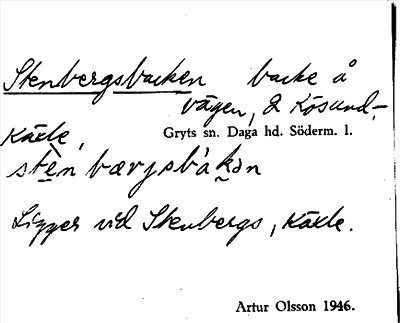 Stenbergsbacken backe å
vägen, 2 Kösund,-
Käxle, Gryts sn. Daga hd. Söderm. l.
stèn bærjsbákən
Ligger vid Stenbergs, Käxle.
Artur Olsson 1946.